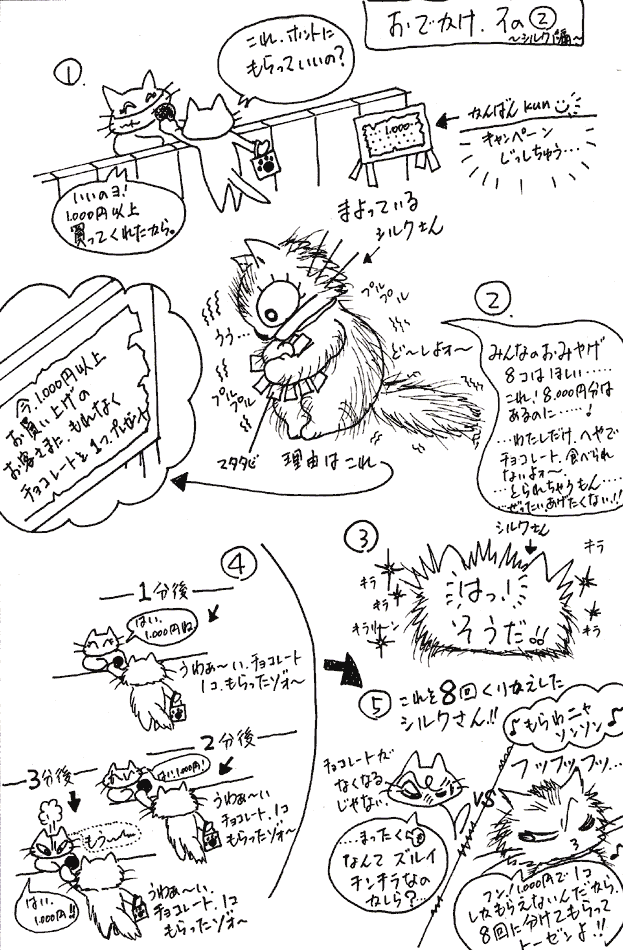 おでかけ.その②
～シルク編～
①
これ.ホントに
もらっていいの?
1.000
かんばんkun
キャンペーン
じっしちゅう…
いいのヨ!
1.000円以上
買ってくれたから。
まよっている
シルクさん
プルプル
うぅ…
ど～しよォ～
プル
プル
マタタビ
理由はこれ
今.1.000円以上
お買い上げの
お客さまに もれなく
チョコレートを1つプレゼント
②
みんなのおみやげ
8コはほしい……
これ!8.000円分は
あるのに……♪
…わたしだけ.へやで
チョコレート.食べられ
ないよォ～.
…とられちゃうもん…
…ぜったいあげたくない!!
③
シルクさん
キラ
キラ
キラ
キラリーン
キラ
はっ!
そうだ!!
④
1分後
はい.
1.000円ね
うわぁ～い.チョコレート
1コ.もらったゾォ～
2分後
はい1.000円!
うわぁ～い
チョコレート.1コ
もらったゾォ～
3分後
もう～
はい.
1.000円!!
うわぁ～い.
チョコレート.1コ
もらったゾォ～
⑤
これを8回くりかえした
シルクさん!!
♪もらわニャ
ソンソン♪
チョコレートが
なくなる
じゃない.
VS
フッフッフッ…
…まったく
なんて ズルイ
チンチラなの
かしら?…
フン!1.000円で1コ
しかもらえないんだから
8回に分けてもらって
トーゼンよ!!